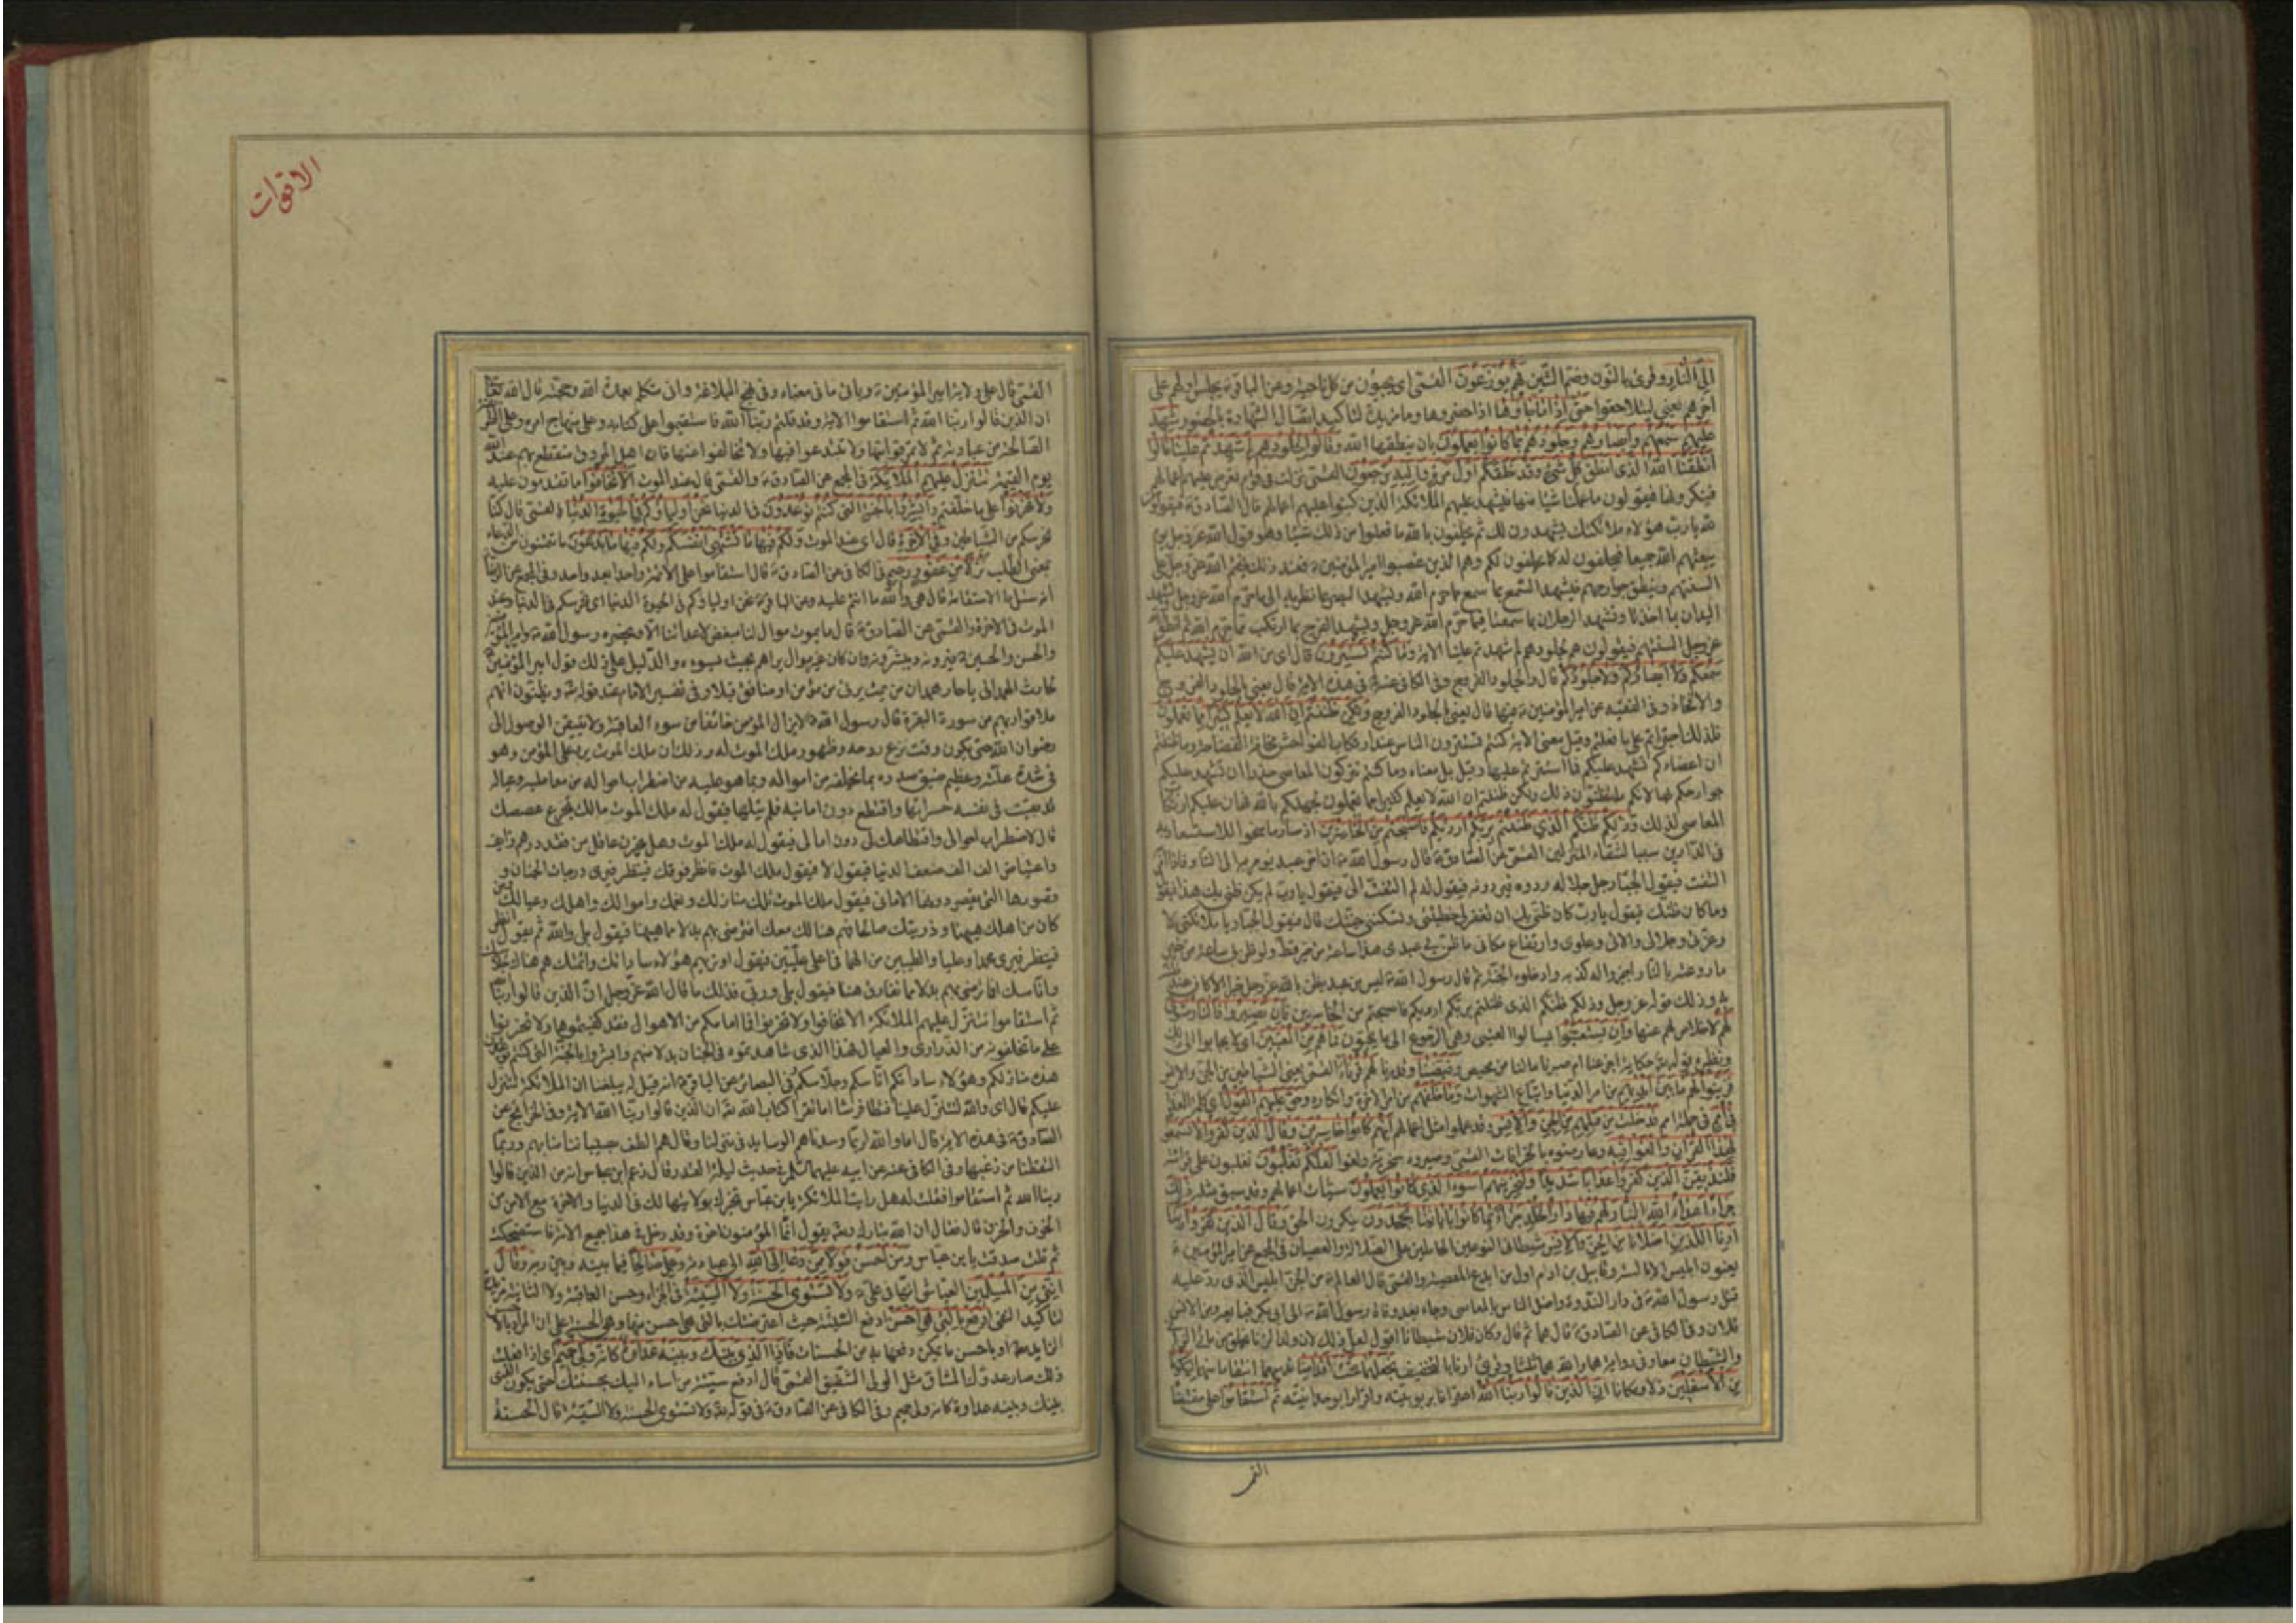 إلى النار وقرئ بالنون وضم الشين فهم يوزعون القمي اى يجيؤن من كل ناحية وعن الباقر ع يحبس اولهم على
اخرهم يعنى ليتلاحقوا حتى إذا ما جاؤها اذا حضروها وما مزيدة لتاكيد اتصال الشهادة بالحضور شهد
عليهم سمعهم وأبصارهم وجلودهم بما كانوا يعملون بان ينطقها الله وقالوا لجلودهم لم شهدتم علينا قالوا
أنطقنا الله الذى أنطق كل شئ وهو خلقكم أول مرة وإليه ترجعون القمى نزلت فى قوم تعرض عليهم اعمالهم
فينكرونها فيقولون ما عملنا شيئا منها فيشهد عليهم الملائكة الذين كتبوا عليهم اعمالهم قال الصادق ع فيقولون
لله يا رب هؤلاء ملائكتك يشهدون لك ثم يحلفون بالله ما فعلوا من ذلك شيئا وهو قول الله عز وجل يوم
يبعثهم الله جميعا فيحلفون له كما يحلفون لكم وهم الذين غصبوا امير المؤمنين ع فعند ذلك يختم الله عز وجل على
السنتهم وينطق جوارحهم فيشهد السمع بما سمع مما حرم الله ويشهد البصر بما نظر به الى ما حرم الله عز وجل وتشهد
اليدان بما اخذتا وتشهد الرجلان بما سعتا فيما حرم الله عز وجل ويشهد الفرج بما ارتكب مما حرم الله ثم انطق الله
عز وجل السنتهم فيقولون هم لجلودهم لم شهدتم علينا الاية وما كنتم تستترون قال اى من الله أن يشهد عليكم
سمعكم ولا أبصاركم ولا جلودكم قال والجلود الفروج وفى الكافى عنه ع فى هذه الاية قال يعنى بالجلود الفروج
والافخاذ وفى الفقيه عن امير المؤمنين ع فيها قال يعنى بالجلود الفروج ولكن ظننتم أن الله لا يعلم كثيرا مما تعملون
فلذلك اجتراتم على ما فعلتم وقيل معنى الاية كنتم تستترون الناس عند ارتكاب الفواحش مخافة الفضاحة وما ظننتم
ان اعضاءكم تشهد عليكم فما استترتم عليها وقيل بل معناه وما كنتم تتركون المعاصى حذرا ان تشهد عليكم
جوارحكم بها لانكم ما تظنون ذلك ولكن ظننتم ان الله لا يعلم كثيرا مما تعملون لجهلكم بالله فهان عليكم ارتكاب
المعاصى لذلك وذلكم ظنكم الذى ظننتم بربكم أرديكم فأصبحتم من الخاسرين اذ صار ما منحوا للاستسعاد به
فى الدارين سببا لشقاء المنزلين القمى عن الصادق ع قال رسول الله ص ان اخر عبد يؤمر به الى النار فاذا امر به
التفت فيقول الجبار جل جلاله ردوه فيردونه فيقول له لم التفت الى فيقول يا رب لم يكن ظنى بك هذا فيقول
وما كان ظنك فيقول يا رب كان ظنى بك ان تغفر لى خطيئتى وتسكننى جنتك قال فيقول الجبار يا ملائكتى لا
وعزتى وجلالى والائى وعلوى وارتفاع مكانى ما ظن بى عبدى هذا ساعة من خير قط ولو ظن بى ساعة من خير
ما روعته بالنار اجيزوا له كذبه وادخلوه الجنة ثم قال رسول الله ص ليس من عبد يظن بالله عز وجل خيرا الا كان عند ظنه
به وذلك قوله عز وجل وذلكم ظنكم الذى ظننتم بربكم ارديكم فاصبحتم من الخاسرين فإن يصبروا فالنار مثوى
لهم لا خلاص لهم عنها وإن يستعتبوا يسالوا العتبى وهى الرجوع الى ما يحبون فما هم من المعتبين اى لا يجابوا الى ذلك
ونظيره قوله تعالى حكاية اجزعنا ام صبرنا ما لنا من محيص وقيضنا وقدرنا لهم قرناء القمى يعنى الشياطين من الجن والانس
فزينوا لهم ما بين أيديهم من امر الدنيا واتباع الشهوات وما خلفهم من امر الاخرة وانكاره وحق عليهم القول اى كلمة العذاب
فى أمم فى جملة امم قد خلت من قبلهم من الجن والإنس وقد عملوا مثل اعمالهم إنهم كانوا خاسرين وقال الذين كفروا لا تسمعوا
لهذا القران والغوا فيه وعارضوه بالخرافات القمى وصيروه سخرية ولغوا لعلكم تغلبون تغلبون على قراءته
فلنذيقن الذين كفروا عذابا شديدا ولنجزينهم أسوء الذى كانوا يعملون سيئات اعمالهم وقد سبق مثله ذلك
جزاء أعداء الله النار لهم فيها دار الخلد جزاء بما كانوا باياتنا يجحدون ينكرون الحق وقال الذين كفروا ربنا
أرنا اللذين أضلانا من الجن والإنس شيطانى النوعين الحاملين على الضلالة والعصيان فى المجمع عن امير المؤمنين ع
يعنون ابليس الابالسة وقابيل بن ادم اول من ابدع المعصية والقمى قال العالم ع من الجن ابليس الذى رد عليه
قتل رسول الله ص فى دار الندوة واضل الناس بالمعاصى وجاء بعد وفاة رسول الله ص الى ابى بكر فبايعه ومن الانس
فلان وفى الكافى عن الصادق ع قال هما ثم قال وكان فلان شيطانا اقول لعل ذلك لان ولد الزنا يخلق من مائى الزانى
والشيطان معا وفى رواية هما والله هما ثلثا وقرئ ارنا بالتخفيف نجعلهما تحت أقدامنا ندسهما انتقاما منهما ليكونا
من الأسفلين ذلا ومكانا إن الذين قالوا ربنا الله اعترافا بربوبيته واقرارا بوحدانيته ثم استقاموا على مقتضاه
القمى
الاقوات
القمى قال على ولاية امير المؤمنين ع وياتى ما فى معناه وفى نهج البلاغة وانى متكلم بعدة الله وحجته قال الله تعالى
ان الذين قالوا ربنا الله ثم استقاموا الاية وقد قلتم ربنا الله فاستقيموا على كتابه وعلى منهاج امره وعلى الطريقة
الصالحة من عبادته ثم لا تمرقوا منها ولا تبتدعوا فيها ولا تخالفوا عنها فان اهل المروق منقطع بهم عند الله
يوم القيمة تتنزل عليهم الملائكة فى المجمع عن الصادق ع والقمى قال عند الموت ألا تخافوا ما تقدمون عليه
ولا تحزنوا على ما خلفتم وأبشروا بالجنة التى كنتم توعدون فى الدنيا نحن أولياؤكم فى الحيوة الدنيا القمى قال كنا
نحرسكم من الشياطين وفى الاخرة قال اى عند الموت ولكم فيها ما تشتهى أنفسكم ولكم فيها ما تدعون ما تتمنون من الدعاء
بمعنى الطلب نزلا من غفور رحيم فى الكافى عن الصادق ع قال استقاموا على الائمة واحدا بعد واحد وفى المجمع عن الرضا ع
انه سئل ما الاستقامة قال هى والله ما انتم عليه وعن الباقر ع نحن اولياؤكم فى الحيوة الدنيا اى نحرسكم فى الدنيا وعند
الموت فى الاخرة والقمى عن الصادق ع قال ما يموت موال لنا مبغض لاعدائنا الا ويحضره رسول الله ص وامير المؤمنين
والحسن والحسين ع فيرونه ويبشرونه وان كان غير موال يراهم بحيث يسوءه والدليل على ذلك قول امير المؤمنين ع
لحارث الهمدانى يا حار همدان من يمت يرنى من مؤمن او منافق قبلا وفى تفسير الامام عند قوله تعالى ويظنون انهم
ملاقوا ربهم من سورة البقرة قال رسول الله ص لا يزال المؤمن خائفا من سوء العاقبة ولا يتيقن الوصول الى
رضوان الله حتى يكون وقت نزع روحه وظهور ملك الموت له وذلك ان ملك الموت يرد على المؤمن وهو
فى شدة علته وعظيم ضيق صدره بما يخلفه من امواله وبما هو عليه من اضطراب احواله من معامليه وعياله
قد بقيت فى نفسه حسراتها واقتطع دون امانيه فلم ينلها فيقول له ملك الموت مالك تجرع غصصك
قال لاضطراب احوالى واقتطاعك لى دون امالى فيقول له ملك الموت وهل يحزن عاقل من فقد درهم زائف
واعتياض الف الف ضعف الدنيا فيقول لا فيقول ملك الموت فانظر فوقك فينظر فيرى درجات الجنان و
قصورها التى يقصر دونها الامانى فيقول ملك الموت تلك منازلك ونعمك واموالك واهلك وعيالك ومن
كان من اهلك هيهنا وذريتك صالحا فهم هنالك معك افترضى بهم بدلا مما هيهنا فيقول بلى والله ثم يقول انظر
فينظر فيرى محمدا وعليا والطيبين من الهما فى اعلى عليين فيقول اوتريهم هؤلاء ساداتك وائمتك هم هناك جلاسك
واناسك افما ترضى بهم بدلا مما تفارق هنا فيقول بلى وربى فذلك ما قال الله عز وجل ان الذين قالوا ربنا الله
ثم استقاموا تتنزل عليهم الملائكة الا تخافوا ولا تحزنوا فما امامكم من الاهوال فقد كفيتموها ولا تحزنوا
على ما تخلفونه من الذرارى والعيال فهذا الذى شاهدتموه فى الجنان بدلا منهم وابشروا بالجنة التى كنتم توعدون
هذه منازلكم وهؤلاء ساداتكم اناسكم وجلاسكم وفى البصائر عن الباقر ع انه قيل له يبلغنا ان الملائكة تتنزل
عليكم قال اى والله لتنزل علينا فتطا فرشنا اما تقرا كتاب الله تعالى ان الذين قالوا ربنا الله الاية وفى الخرائج عن
الصادق ع فى هذه الاية قال اما والله لربما وسدناهم الوسايد فى منازلنا وقال هم الطف بصبياننا منا بهم وربما
التقطنا من زغبها وفى الكافى عنه عن ابيه عليهما السلام فى حديث ليلة القدر قال زعم ابن عباس انه من الذين قالوا
ربنا الله ثم استقاموا فقلت له هل رايت الملائكة يا بن عباس تخبرك بولايتها لك فى الدنيا والاخرة مع الامن من
الخوف والحزن قال فقال ان الله تبارك وتعالى يقول انما المؤمنون اخوة وقد دخل فى هذا جميع الامة فاستضحكت
ثم قلت صدقت يا بن عباس ومن أحسن قولا ممن دعا إلى الله الى عبادته وعمل صالحا فيما بينه وبين ربه وقال
إننى من المسلمين العياشى انها فى على ع ولا تستوى الحسنة ولا السيئة فى الجزاء وحسن العاقبة ولا الثانية مزيدة
لتاكيد النفى ادفع بالتى هى أحسن ادفع السيئة حيث اعترضتك بالتى هى احسن منها وهى الحسنة على ان المراد بالاحسن
الزايد مطلقا او باحسن ما يمكن دفعها به من الحسنات فإذا الذى بينك وبينه عداوة كأنه ولى حميم اى اذا فعلت
ذلك صار عدوك المشاق مثل الولى الشفيق القمى قال ادفع سيئة من اساء اليك بحسنتك حتى يكون الذى
بينك وبينه عداوة كانه ولى حميم وفى الكافى عن الصادق ع فى قوله تعالى ولا تستوى الحسنة ولا السيئة قال الحسنة